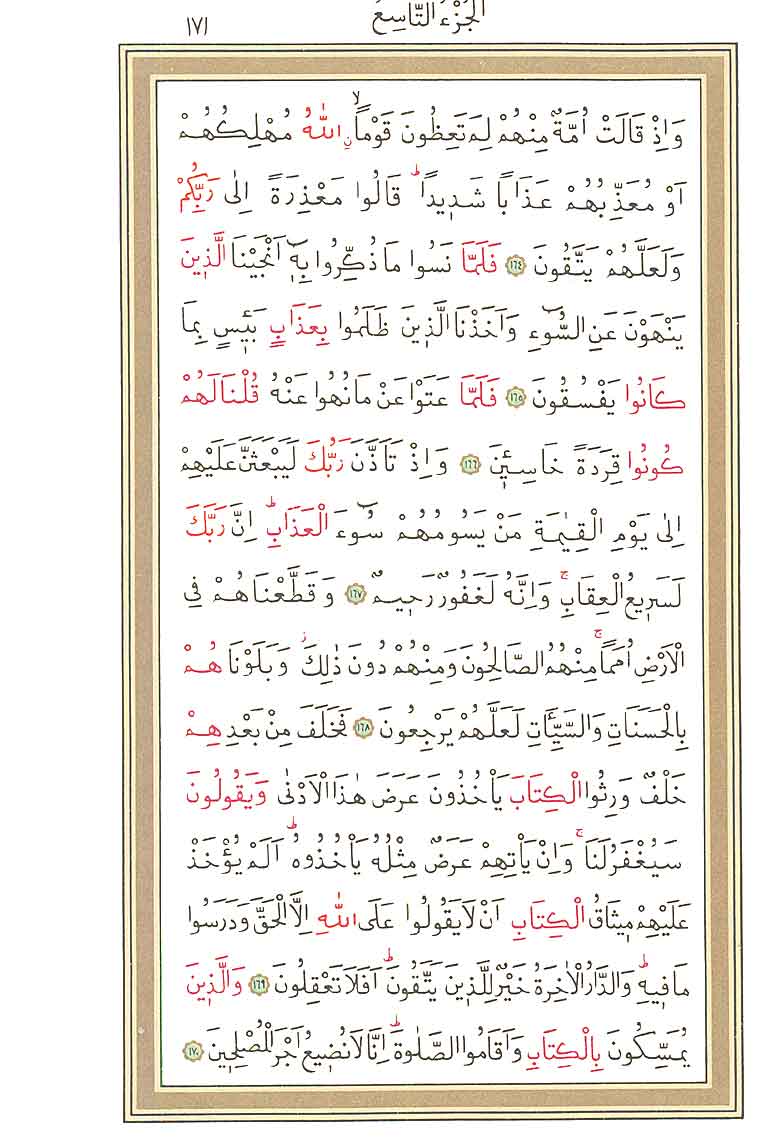 اَلْجُزْءُ التَّاسِعُ
١٧١
وَاِذْ قَالَتْ اُمَّةٌ مِنْهُمْ لِمَ تَعِظُونَ قَوْمًاۙ ۨاللّٰهُ مُهْلِكُهُمْ
اَوْ مُعَذِّبُهُمْ عَذَابًا شَدٖيدًاؕ قَالُوا مَعْذِرَةً اِلٰى رَبِّكُمْ
وَلَعَلَّهُمْ يَتَّقُونَ ﴿١٦٤﴾ فَلَمَّا نَسُوا مَا ذُكِّرُوا بِهٖٓ اَنْجَيْنَا الَّذٖينَ
يَنْهَوْنَ عَنِ السُّٓوءِ وَاَخَذْنَا الَّذٖينَ ظَلَمُوا بِعَذَابٍ بَـٖٔيسٍ بِمَا
كَانُوا يَفْسُقُونَ ﴿١٦٥﴾ فَلَمَّا عَتَوْا عَنْ مَا نُهُوا عَنْهُ قُلْنَا لَهُمْ
كُونُوا قِرَدَةً خَاسِـٖٔينَ ﴿١٦٦﴾ وَاِذْ تَاَذَّنَ رَبُّكَ لَيَبْعَثَنَّ عَلَيْهِمْ
اِلٰى يَوْمِ الْقِيٰمَةِ مَنْ يَسُومُهُمْ سُٓوءَ الْعَذَابِؕ اِنَّ رَبَّكَ
لَسَرٖيعُ الْعِقَابِۚ وَاِنَّهُ لَغَفُورٌ رَحٖيمٌ ﴿١٦٧﴾ وَقَطَّعْنَاهُمْ فِى
الْاَرْضِ اُمَمًاۚ مِنْهُمُ الصَّالِحُونَ وَمِنْهُمْ دُونَ ذٰلِكَؗ وَبَلَوْنَاهُمْ
بِالْحَسَنَاتِ وَالسَّيِّـَٔاتِ لَعَلَّهُمْ يَرْجِعُونَ ﴿١٦٨﴾ فَخَلَفَ مِنْ بَعْدِهِمْ
خَلْفٌ وَرِثُوا الْكِتَابَ يَاْخُذُونَ عَرَضَ هٰذَا الْاَدْنٰى وَيَقُولُونَ
سَيُغْفَرُ لَنَاۚ وَاِنْ يَاْتِهِمْ عَرَضٌ مِثْلُهُ يَاْخُذُوهُؕ اَلَمْ يُؤْخَذْ
عَلَيْهِمْ مٖيثَاقُ الْكِتَابِ اَنْ لَا يَقُولُوا عَلَى اللّٰهِ اِلَّا الْحَقَّ وَدَرَسُوا
مَا فٖيهِؕ وَالدَّارُ الْاٰخِرَةُ خَيْرٌ لِلَّذٖينَ يَتَّقُونَؕ اَفَلَا تَعْقِلُونَ ﴿١٦٩﴾ وَالَّذٖينَ
يُمَسِّكُونَ بِالْكِتَابِ وَاَقَامُوا الصَّلٰوةَؕ اِنَّا لَا نُضٖيعُ اَجْرَ الْمُصْلِحٖينَ ﴿١٧٠﴾